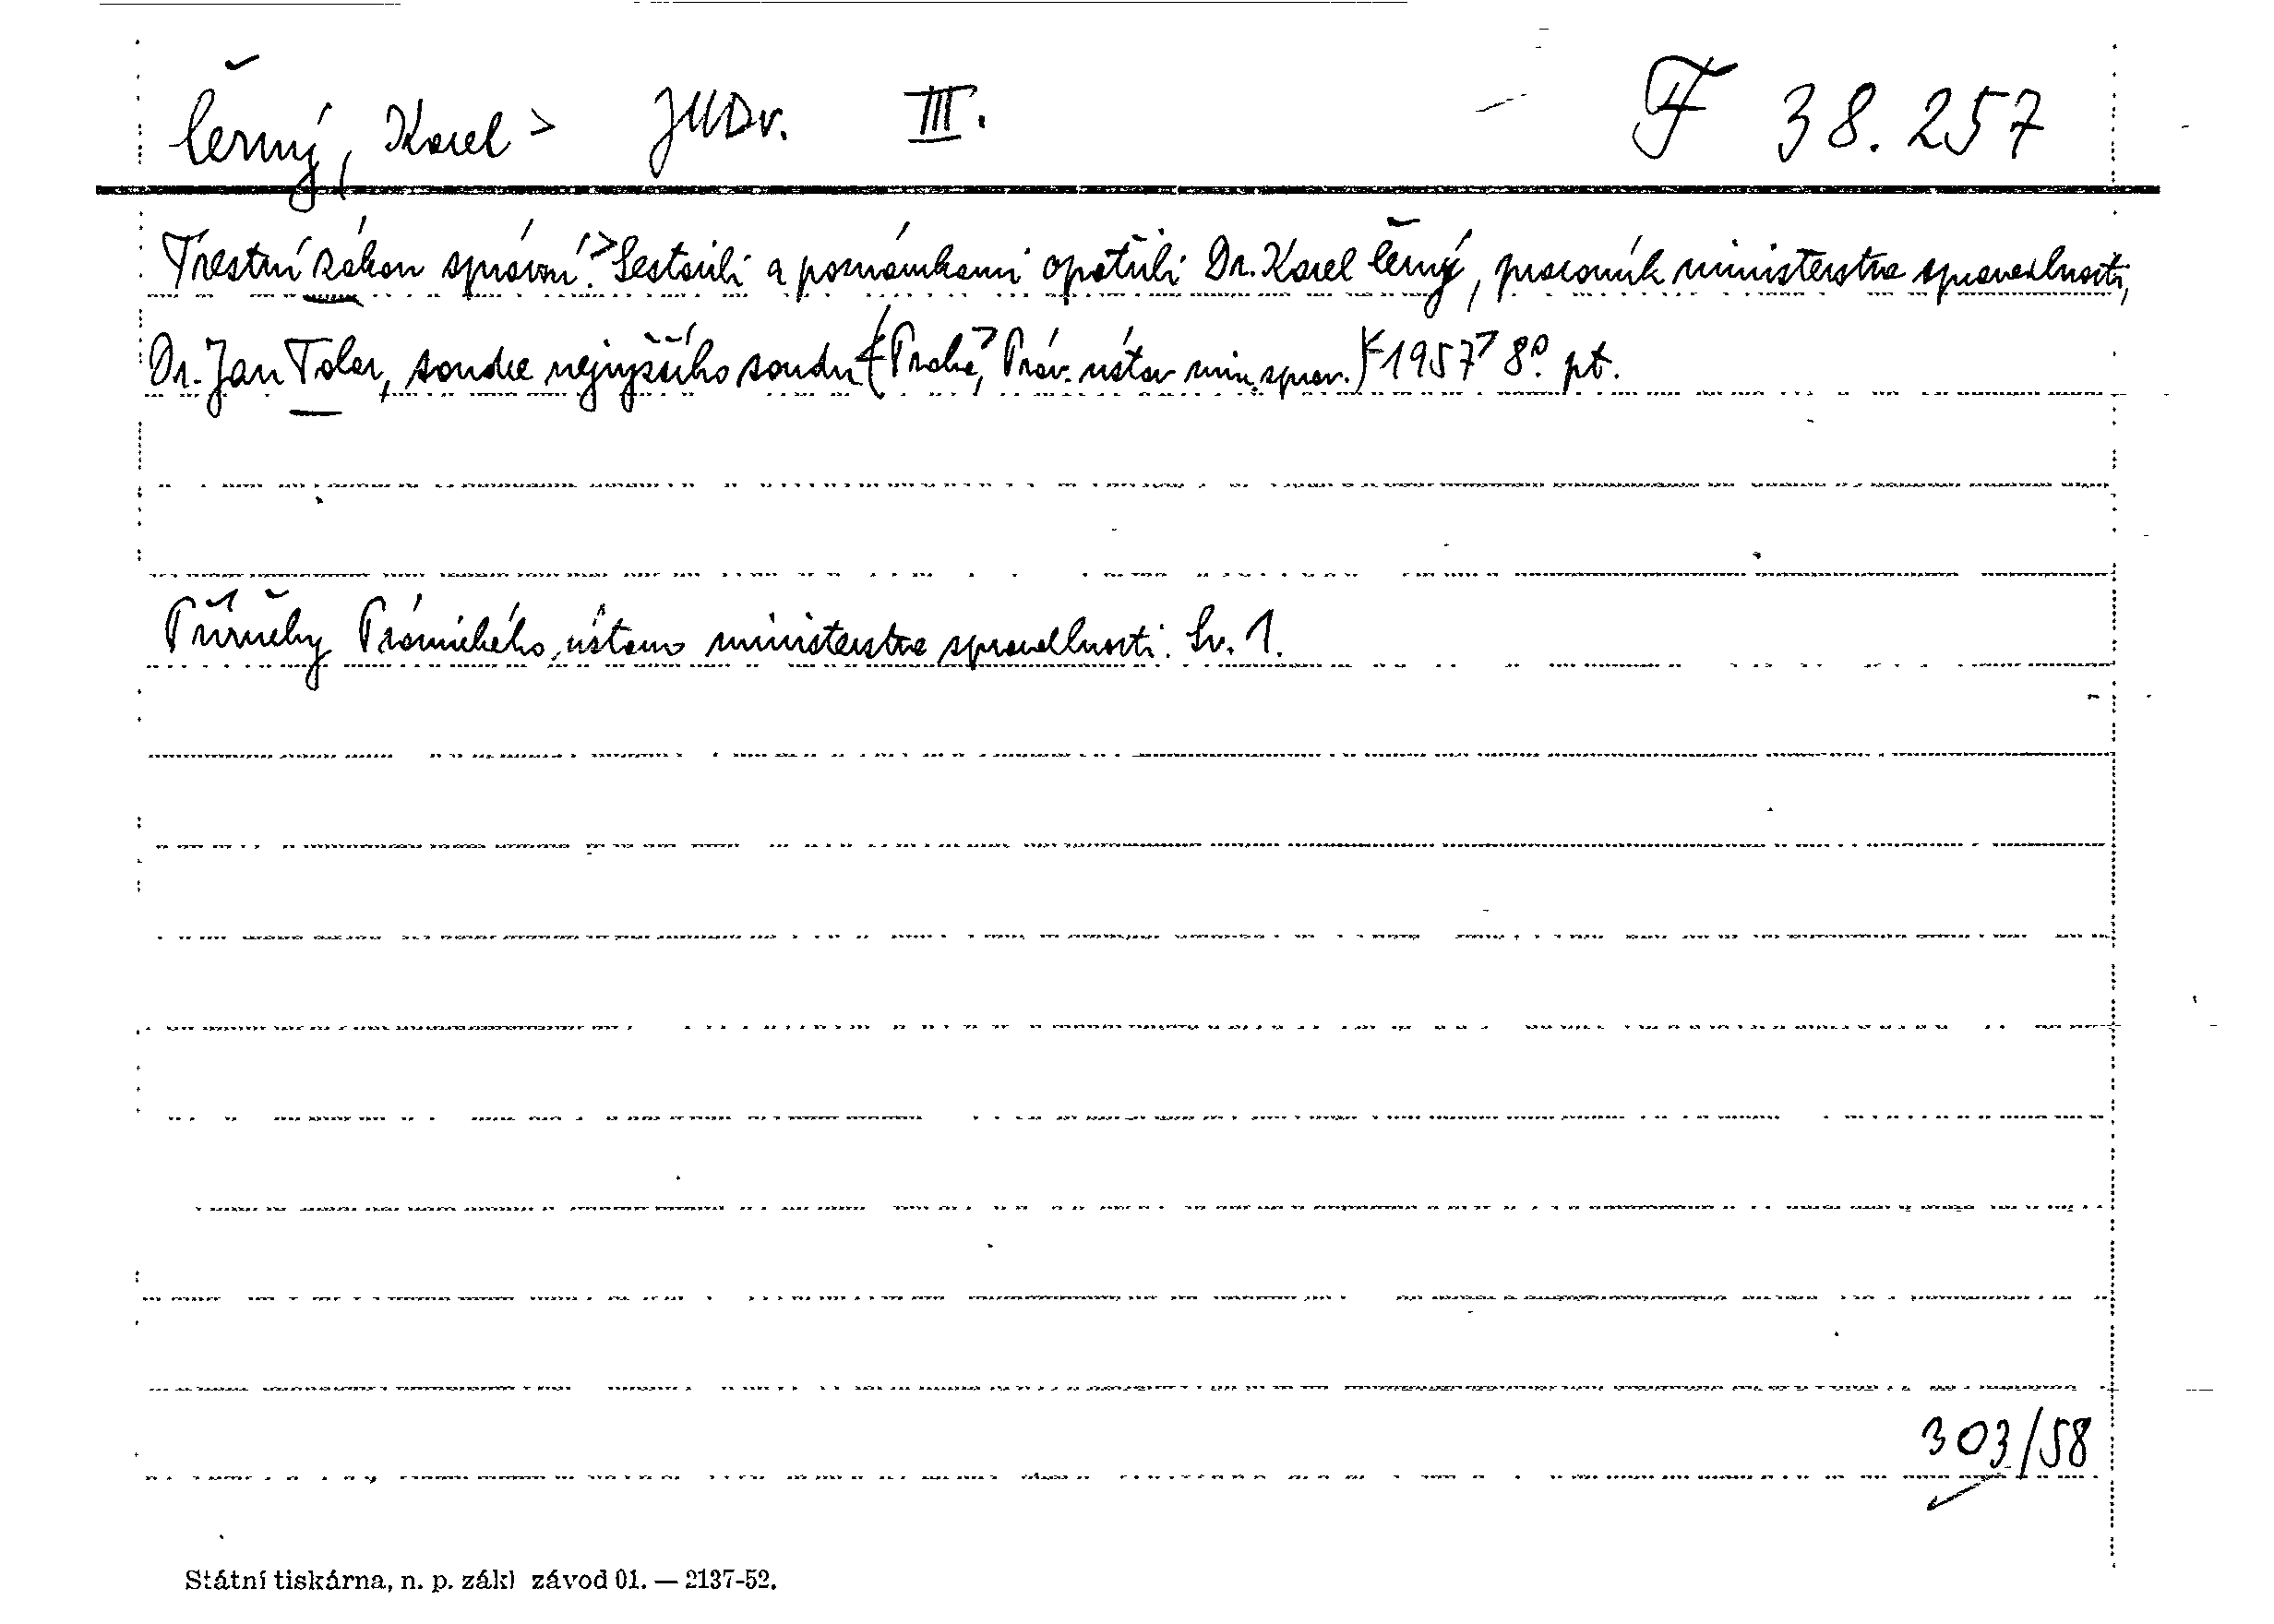 Černý, Karel > JUDr. III. F 38.257
Trestní zákon správní.> Sestavili a poznámkami opatřili Dr. Karel Černý, pracovník ministerstva spravedlnosti,
Dr. Jan Tolar, soudce nejvyššího soudu (Praha, Práv. ústav min. sprav.) 1957 8° pt.
Příručky Právnického ústavu ministerstva spravedlnosti. Sv. 1.
303/58
Státní tiskárna, n. p. zákl závod 01. — 2137-52.